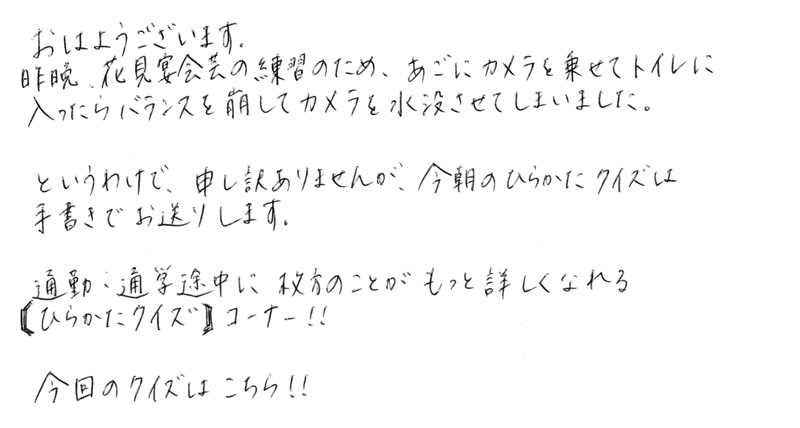 おはようございます。
昨晩、花見宴会芸の練習のため、あごにカメラを乗せてトイレに
入ったらバランスを崩してカメラを水没させてしまいました。
というわけで、申し訳ありませんが、今朝のひらかたクイズは
手書きでお送りします。
通勤・通学途中に枚方のことがもっと詳しくなれる
【ひらかたクイズ】コーナー!!
今回のクイズはこちら!!